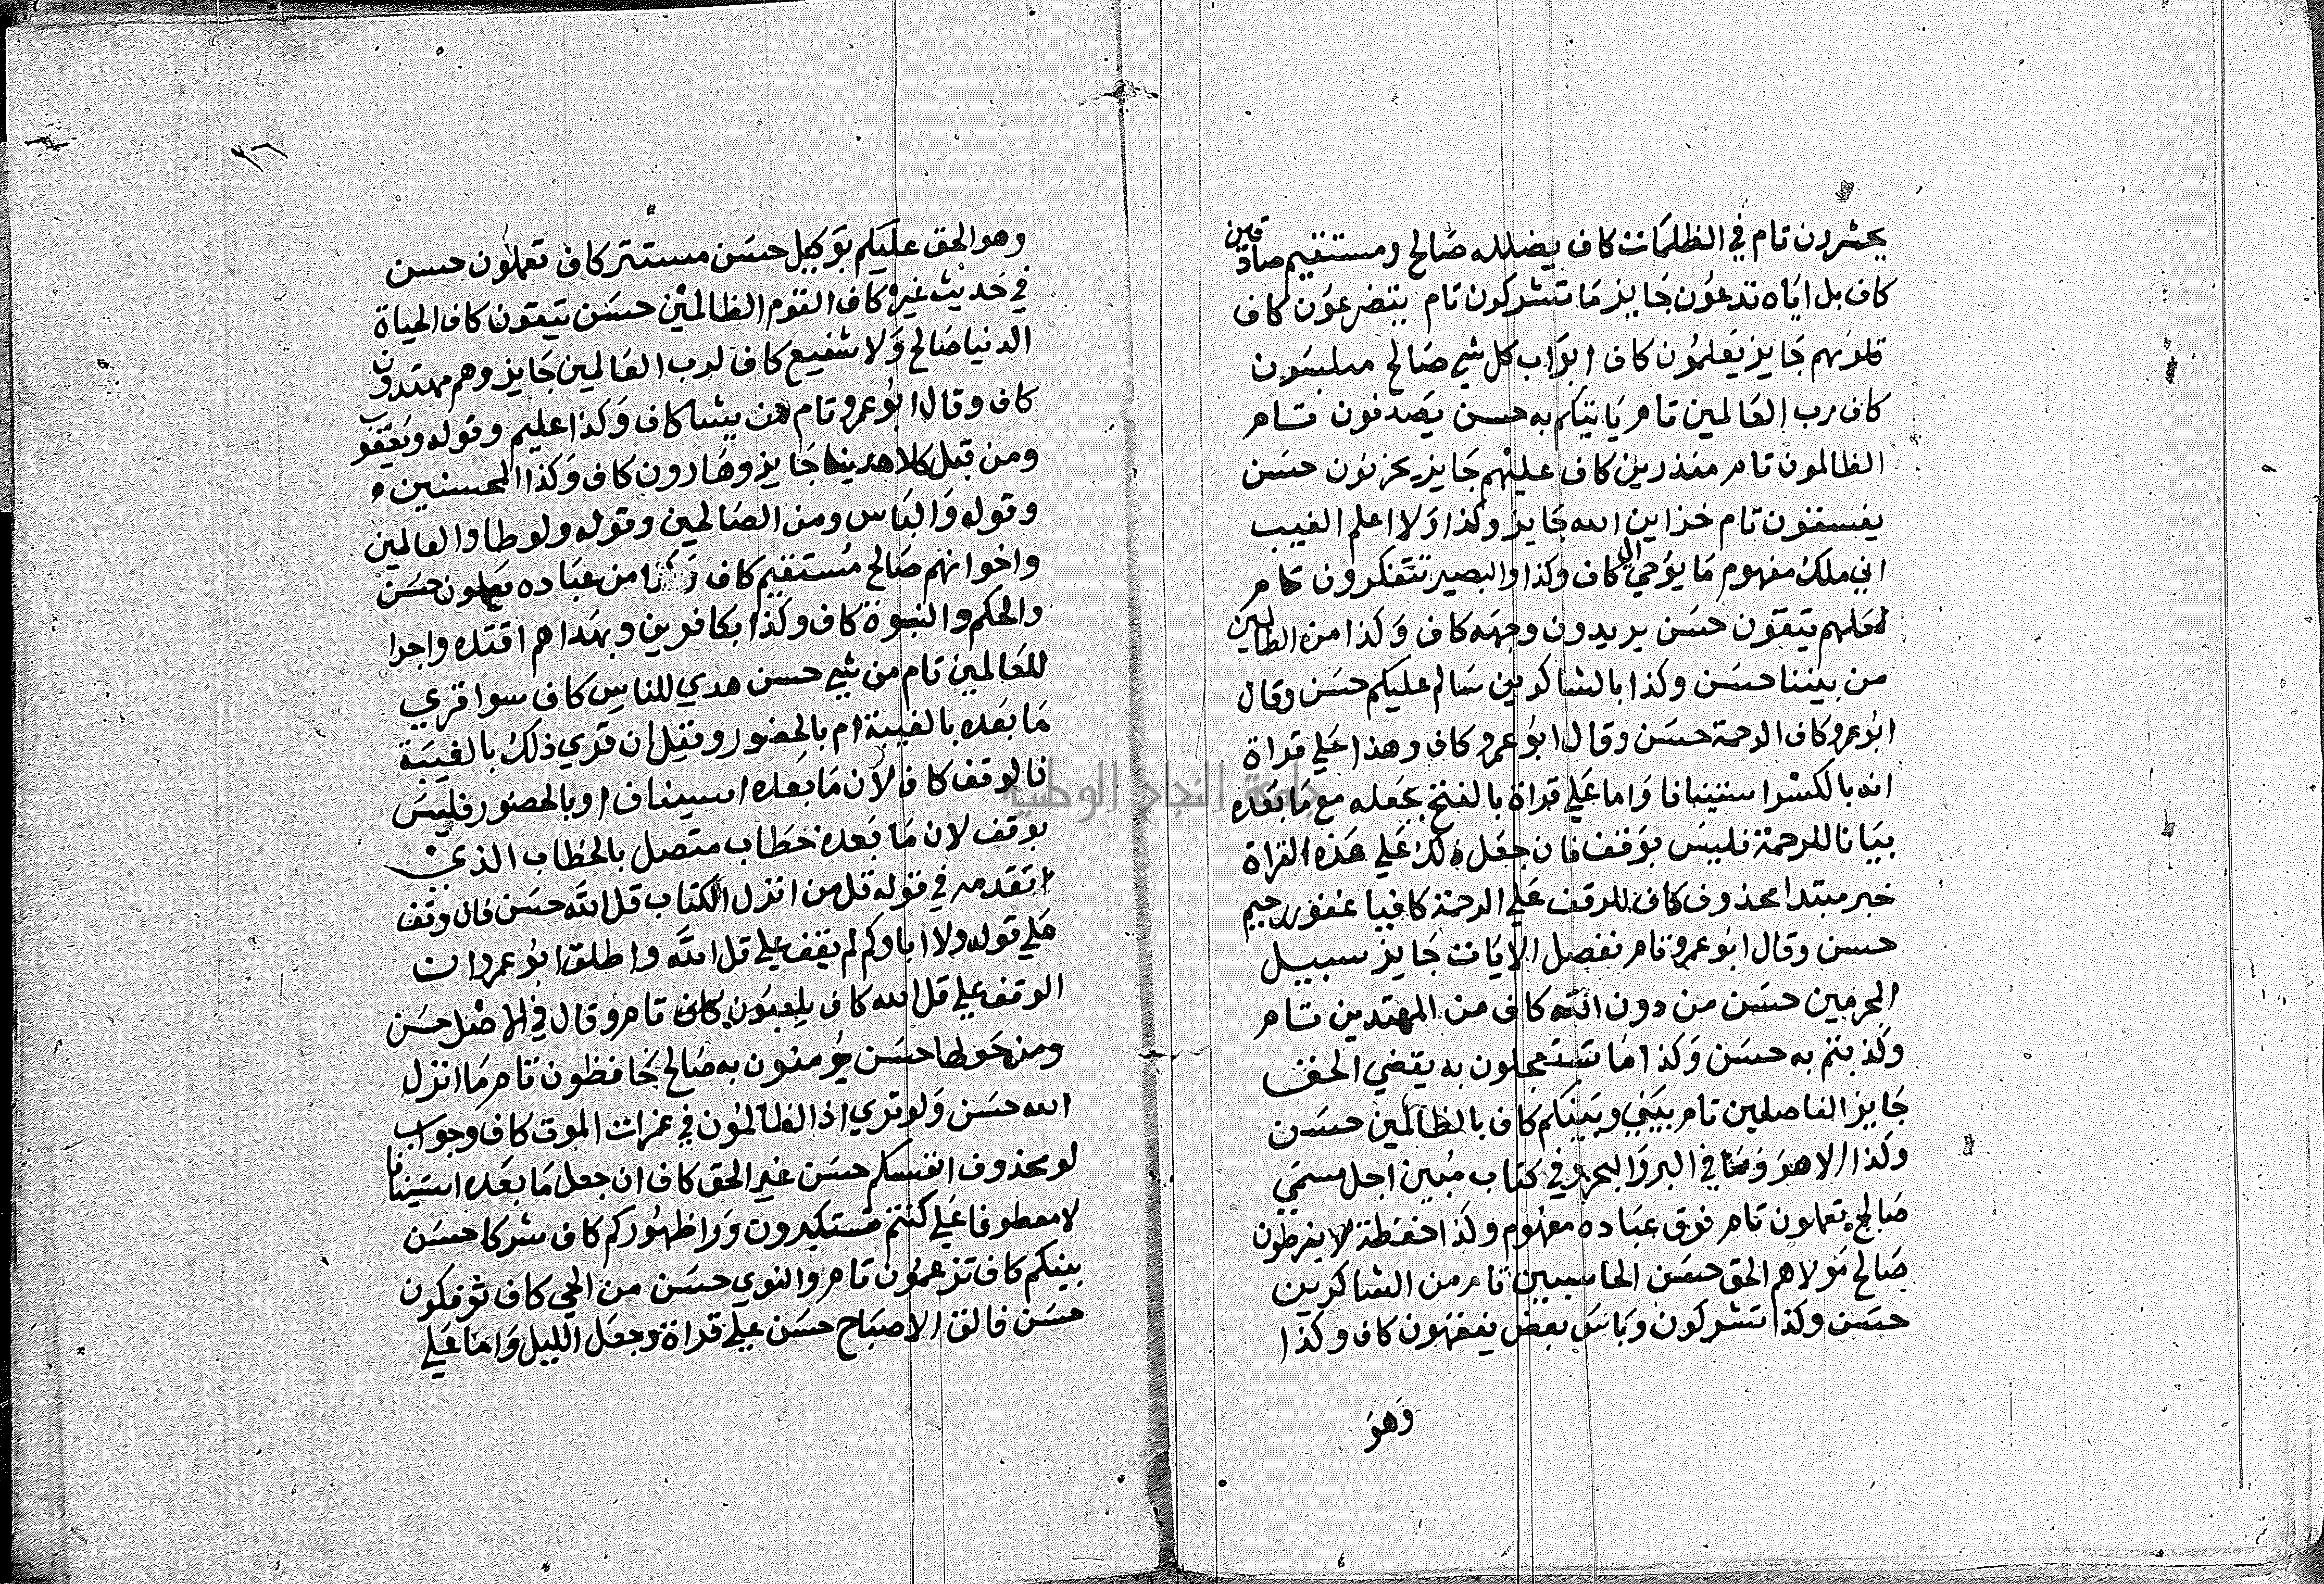 يحشرون تام في الظلمات كاف يضلله صالح ومستقيم صادقين
كاف بل اياه تدعون جايز ما تشركون تام يتضرعون كاف
قلوبهم جايز يعلمون كاف ابواب كل شي صالح مبلسون
كاف رب العالمين تام ياتيكم به حسن يصدفون تام
الظالمون تام منذرين كاف عليهم جايز يحزنون حسن
يفسقون تام خزاين الله جايز وكذا ولا اعلم الغيب
اني ملك مفهوم ما يوحي الي كاف وكذا والبصير تتفكرون تام
لعلهم يتقون حسن يريدون وجهه كاف وكذا من الظالمين
من بيننا حسن وكذا بالشاكرين سالم عليكم حسن وقال
ابو عمرو كاف الرحمة حسن وقال ابو عمرو كاف وهذا علي قراة
انه بالكسر استينافا واما علي قراة بالفتح بجعله مع ما بعده
بيانا للرحمة فليس بوقف فان جعل ذلك علي هذه القراة
خبر مبتدا محذوف كاف للوقف علي الرحمة كافيا غفور رحيم
حسن وقال ابو عمرو تام نفصل الايات جايز سبيل
المجرمين حسن من دون الله كاف من المهتدين تام
وكذبتم به حسن وكذا ما تستعجلون به يقضي الحق
جايز الفاصلين تام بيني وبينكم كاف بالظالمين حسن
وكذا الا هو وما في البر والبحر وفي كتاب مبين اجل مسمي
صالح تعملون تام فوق عباده مفهوم وكذا حفظة لا يفرطون
صالح مولاهم الحق حسن الحاسبين تام من الشاكرين
حسن وكذا تشركون وباس بعض يفقهون كاف وكذا
وهو
٣٦
وهو الحق عليكم بوكيل حسن مستقر كاف تعلمون حسن
في حديث غيره كاف القوم الظالمين حسن يتقون كاف الحياة
الدنيا صالح ولا شفيع كاف لرب العالمين جايز وهم مهتدون
كاف وقال ابو عمرو تام من يشا كاف وكذا عليم وقوله ويعقوب
ومن قبل كلا هدينا جايز وهارون كاف وكذا المحسنين
وقوله والياس ومن الصالحين وقوله ولوطا والعالمين
واخوانهم صالح مستقيم كاف وكذا من عباده يعملون حسن
والحكم والنبوة كاف وكذا بكافرين وبهداهم اقتده واجرا
للعالمين تام من شي حسن هدي للناس كاف سوا قري
ما بعده بالغيبة ام بالحضور وقيل ان قري ذلك بالغيبة
فالوقف كاف لان ما بعده استيناف او بالحضور فليس
بوقف لان ما بعده خطاب متصل بالخطاب الذي
تقدمه في قوله قل من انزل الكتاب قل الله حسن فان وقف
علي قوله ولا اباوكم لم يقف علي قل الله واطلق ابو عمرو ان
الوقف علي قل الله كاف يلعبون كاف تام وقال في الاصل حسن
ومن حولها حسن يؤمنون به صالح يحافظون تام ما انزل
الله حسن ولو تري اذ الظالمون في غمرات الموت كاف وجواب
لو محذوف انفسكم حسن غير الحق كاف ان جعل ما بعده استينافا
لا معطوفا علي كنتم تستكبرون وورا ظهوركم كاف شركا حسن
بينكم كاف تزعمون تام والنوي حسن من الحي كاف تؤفكون
حسن فالق الاصباح حسن علي قراة وجعل الليل واما علي
جامعة النجاح الوطنية